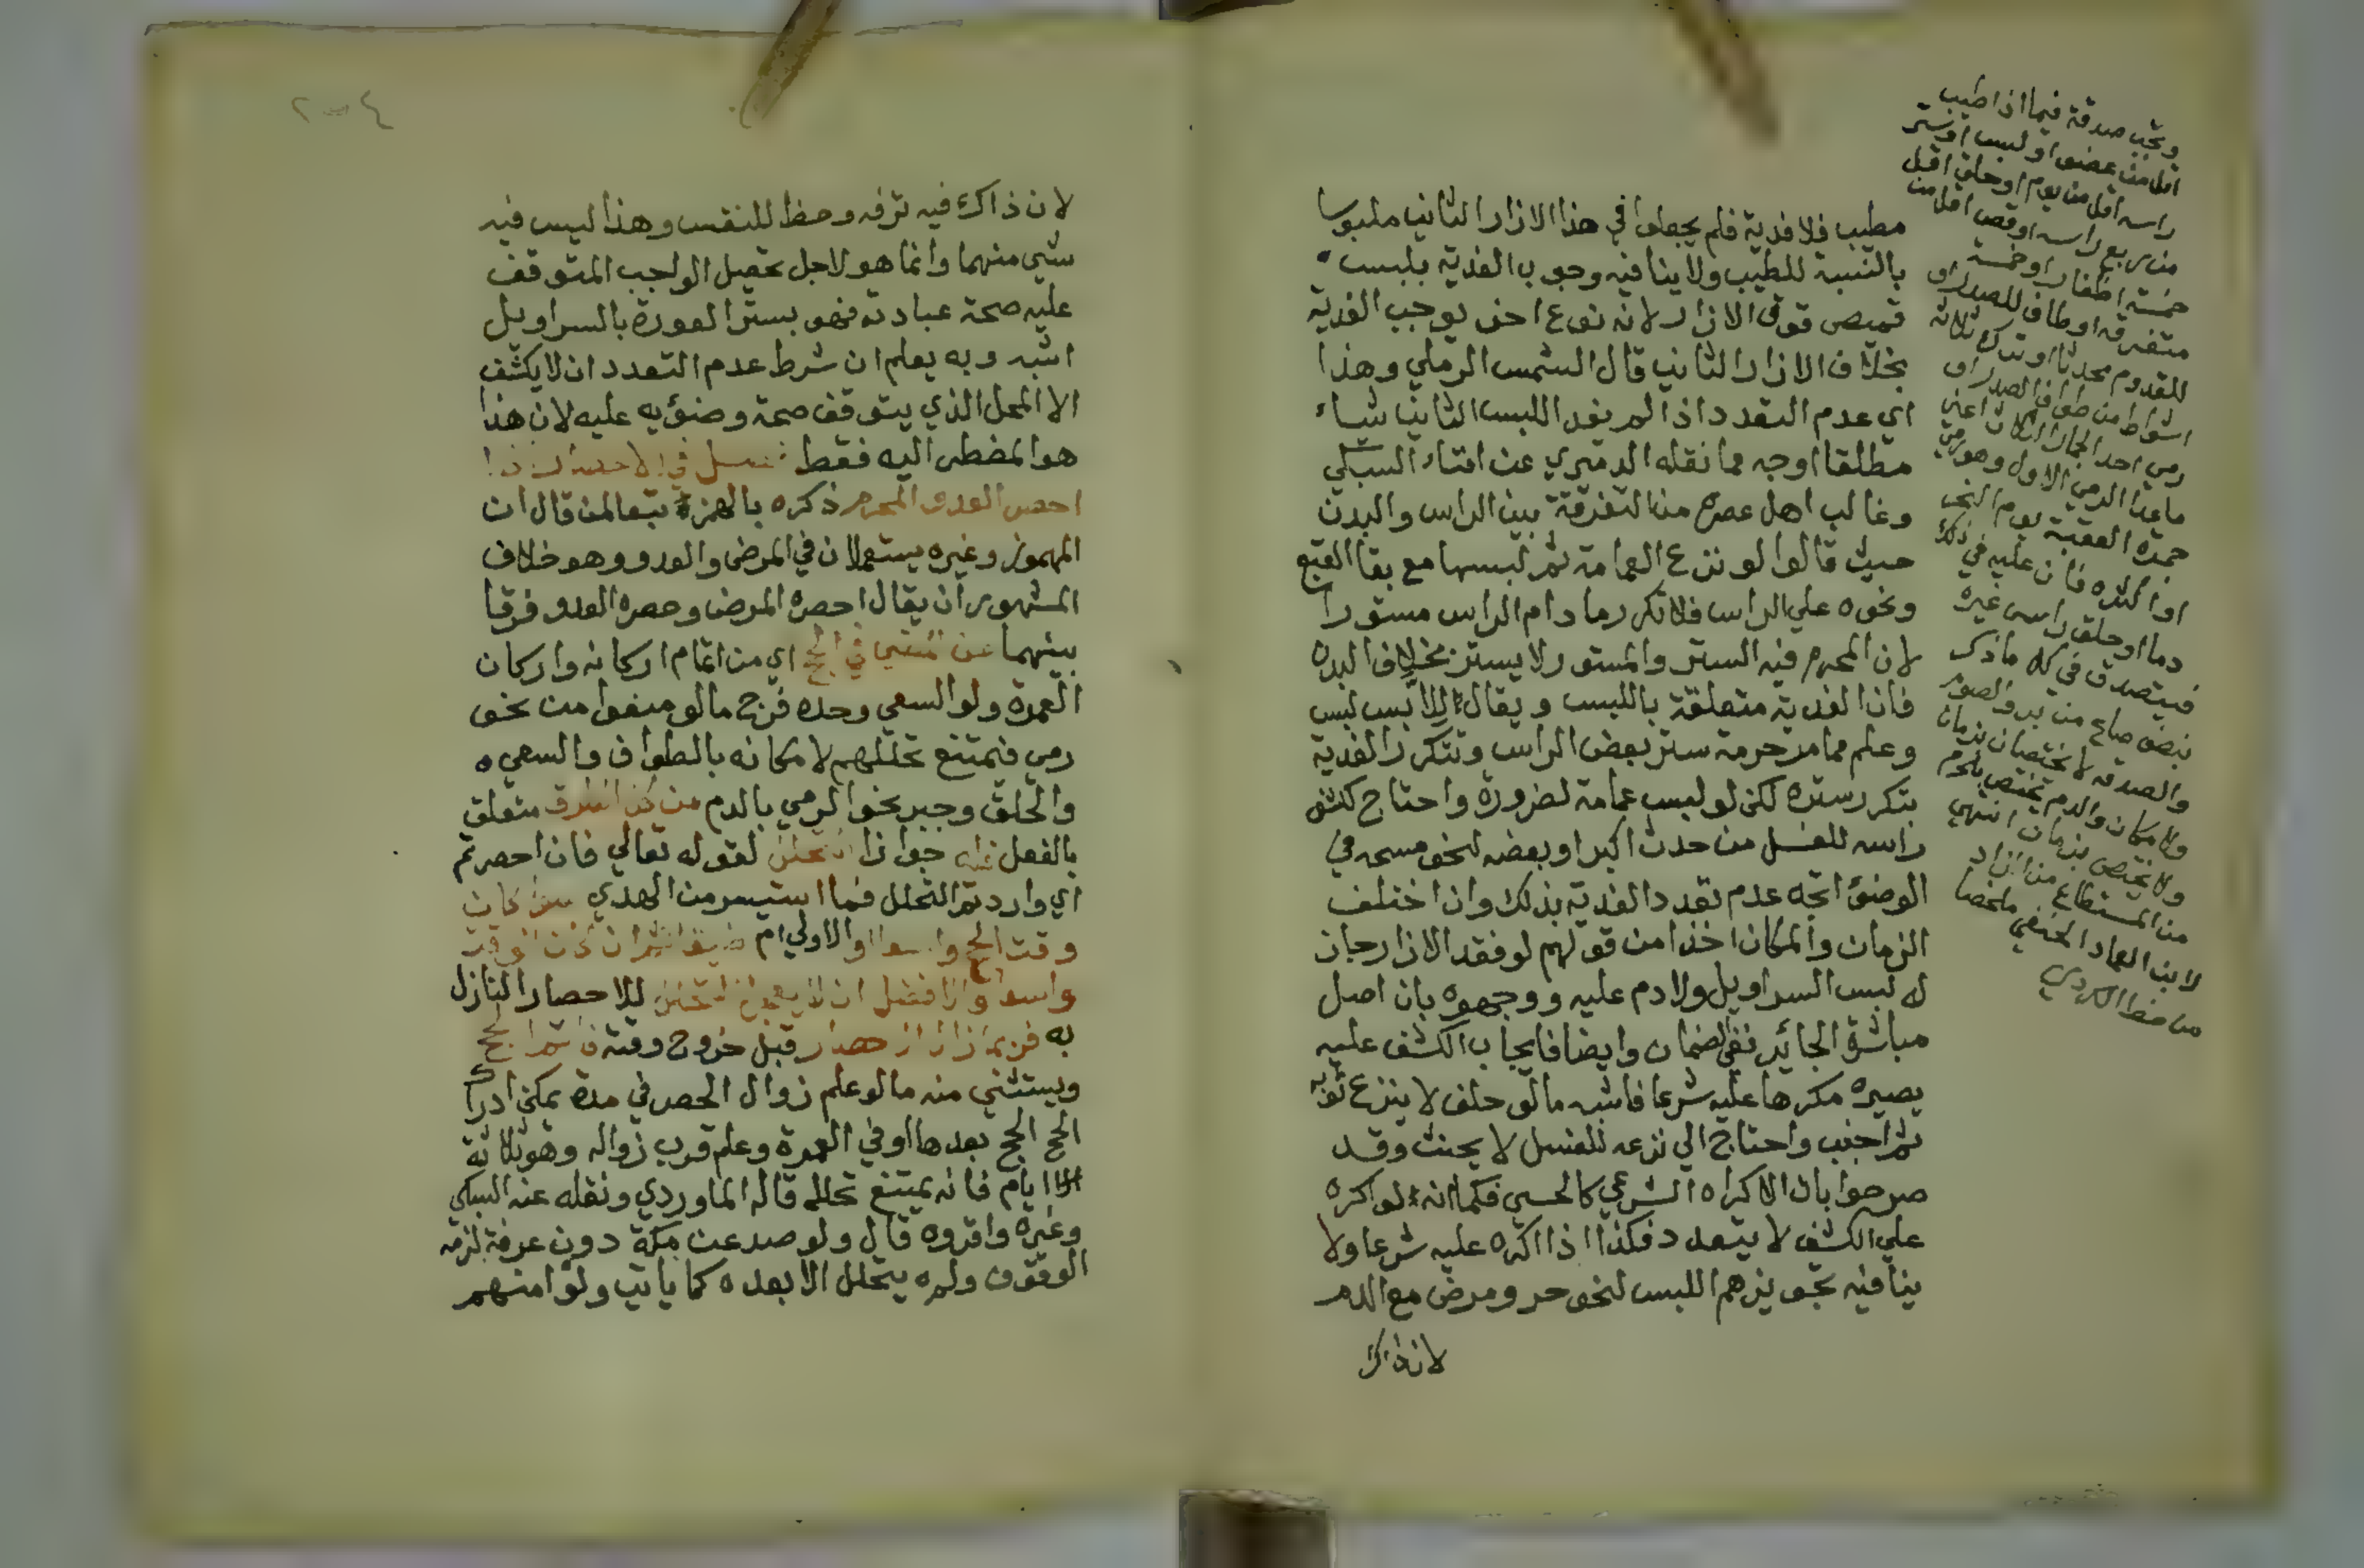 مطيب فلا فدية فلم يجعلوا في هذا الازار الثاني ملبوسا
بالنسبة للطيب ولا ينافيه وجوب الفدية بلبس
قميص فوق الازار لانه نوع اخر يوجب الفدية
بخلاف الازار الثاني قال الشمس الرملي وهذا
اي عدم التعدد اذا لم يفد اللبس الثاني شياء
مطلقا اوجه مما نقله الدميري عن افتاء السبكي
وغالب اهل عصره من التفرقة بين الراس والبدن
حيث قالوا لو نزع العمامة ثم لبسها مع بقا القبع
ونحوه علي الراس فلا تكرر ما دام الراس مستورا
لان المحرم فيه الستر والمستور لا يستر بخلاف البدن
فان الفدية متعلقة باللبس ويقال للابس لبس
وعلم مما مر حرمة ستر بعض الراس وتتكرر الفدية
بتكرر ستره لكن لو لبس عمامة لضرورة واحتاج كشف
راسه للغسل من حدث اكبر او بعضه لنحو مسحه في
الوضؤ اتجه عدم تعدد الفدية بذلك وان اختلف
الزمان والمكان اخذا من قولهم لو فقد الازار جاز
له لبس السراويل ولا دم عليه ووجهوه بان اصل
مباشرة الجائز نفي الضمان وايضا فايجاب الكشف عليه
يصيره مكرها عليه شرعا فاشبه ما لو حلف لا ينزع ثوبه
ثم اجنب واحتاج الي نزعه للغسل لا يحنث وقد
صرحوا بان الاكراه الشرعي كالحسي فكما انه لو اكره
علي الكشف لا يتعدد فكذا اذا اكره عليه شرعا ولا
ينافيه تجويزهم اللبس لنحو حر ومرض مع الدم
لان ذاك
وتجب صدقة فيما اذا طيب
اقل من عضو او لبس او ستر
راسه اقل من يوم او حلق اقل
من ربع راسه او قص اقل من
خمسة اظفار او خمسة
متفرقه او طاف للصدر او
للقدوم محدثا او ترك ثلاثة
اشواط من طواف الصدر او
رمي احد الجمار الثلاث اعني
ما عدا الرمي الاول وهو رمي
جمرة العقبة يوم النحر
او اكثره فان عليه في ذلك
دما او حلق راس غيره
فيتصدق في كل ما ذكر
بنصف صاع من بر والصوم
والصدقه لا يختصان بزمان
ولا مكان والدم يختص بالحرم
ولا يختص بزمان انتهي
من المستطاع من الزاد
لابن العماد الحنفي ملخصا
من خط الكردي
٢٠٤
لان ذاك فيه ترفه وحظ للنفس وهذا ليس فيه
شئي منهما وانما هو لاجل تحصيل الواجب المتوقف
عليه صحة عبادته فهو بستر العورة بالسراويل
اشبه وبه يعلم ان شرط عدم التعدد ان لا يكشف
الا المحل الذي يتوقف صحة وضؤيه عليه لان هذا
هو المضطر اليه فقط فصل في الاحصار اذا
احصر العدو المحرم ذكره بالهمزة تبعا لمن قال ان
المهموز وغيره يستعملان في المرض والعدو وهو خلاف
المشهور ان يقال احصره المرض وحصره العدو فرقا
بينهما عن المضي في الحج اي من اتمام اركانه واركان
العمرة ولو السعي وحده فخرج ما لو منعوا من نحو
رمي فيمتنع تحللهم لامكانه بالطواف والسعي
والحلق وجبر نحو الرمي بالدم من كل الطرق متعلق
بالفعل فله جوازا التحلل لقوله تعالي فان احصرتم
اي واردتم التحلل فما استيسر من الهدي سوا كان
وقت الحج واسعا والاولي ام ضيقا ثم ان كان الوقت
واسعا فالافضل ان لا يعجل التحلل للاحصار النازل
به فربما زال الاحصار قبل خروج وقته فاتم الحج
ويستثني منه ما لو علم زوال الحصر في مدة يمكن ادراك
الحج الحج بعدها او في العمرة وعلم قرب زواله وهو ثلاثة
ايام فانه يمتنع تحلله قاله الماوردي ونقله عنه السبكي
وغيره واقروه قال ولو صد عن مكة دون عرفة لزمه
الوقوف ولم يتحلل الا بعده كما ياتي ولو امنهم